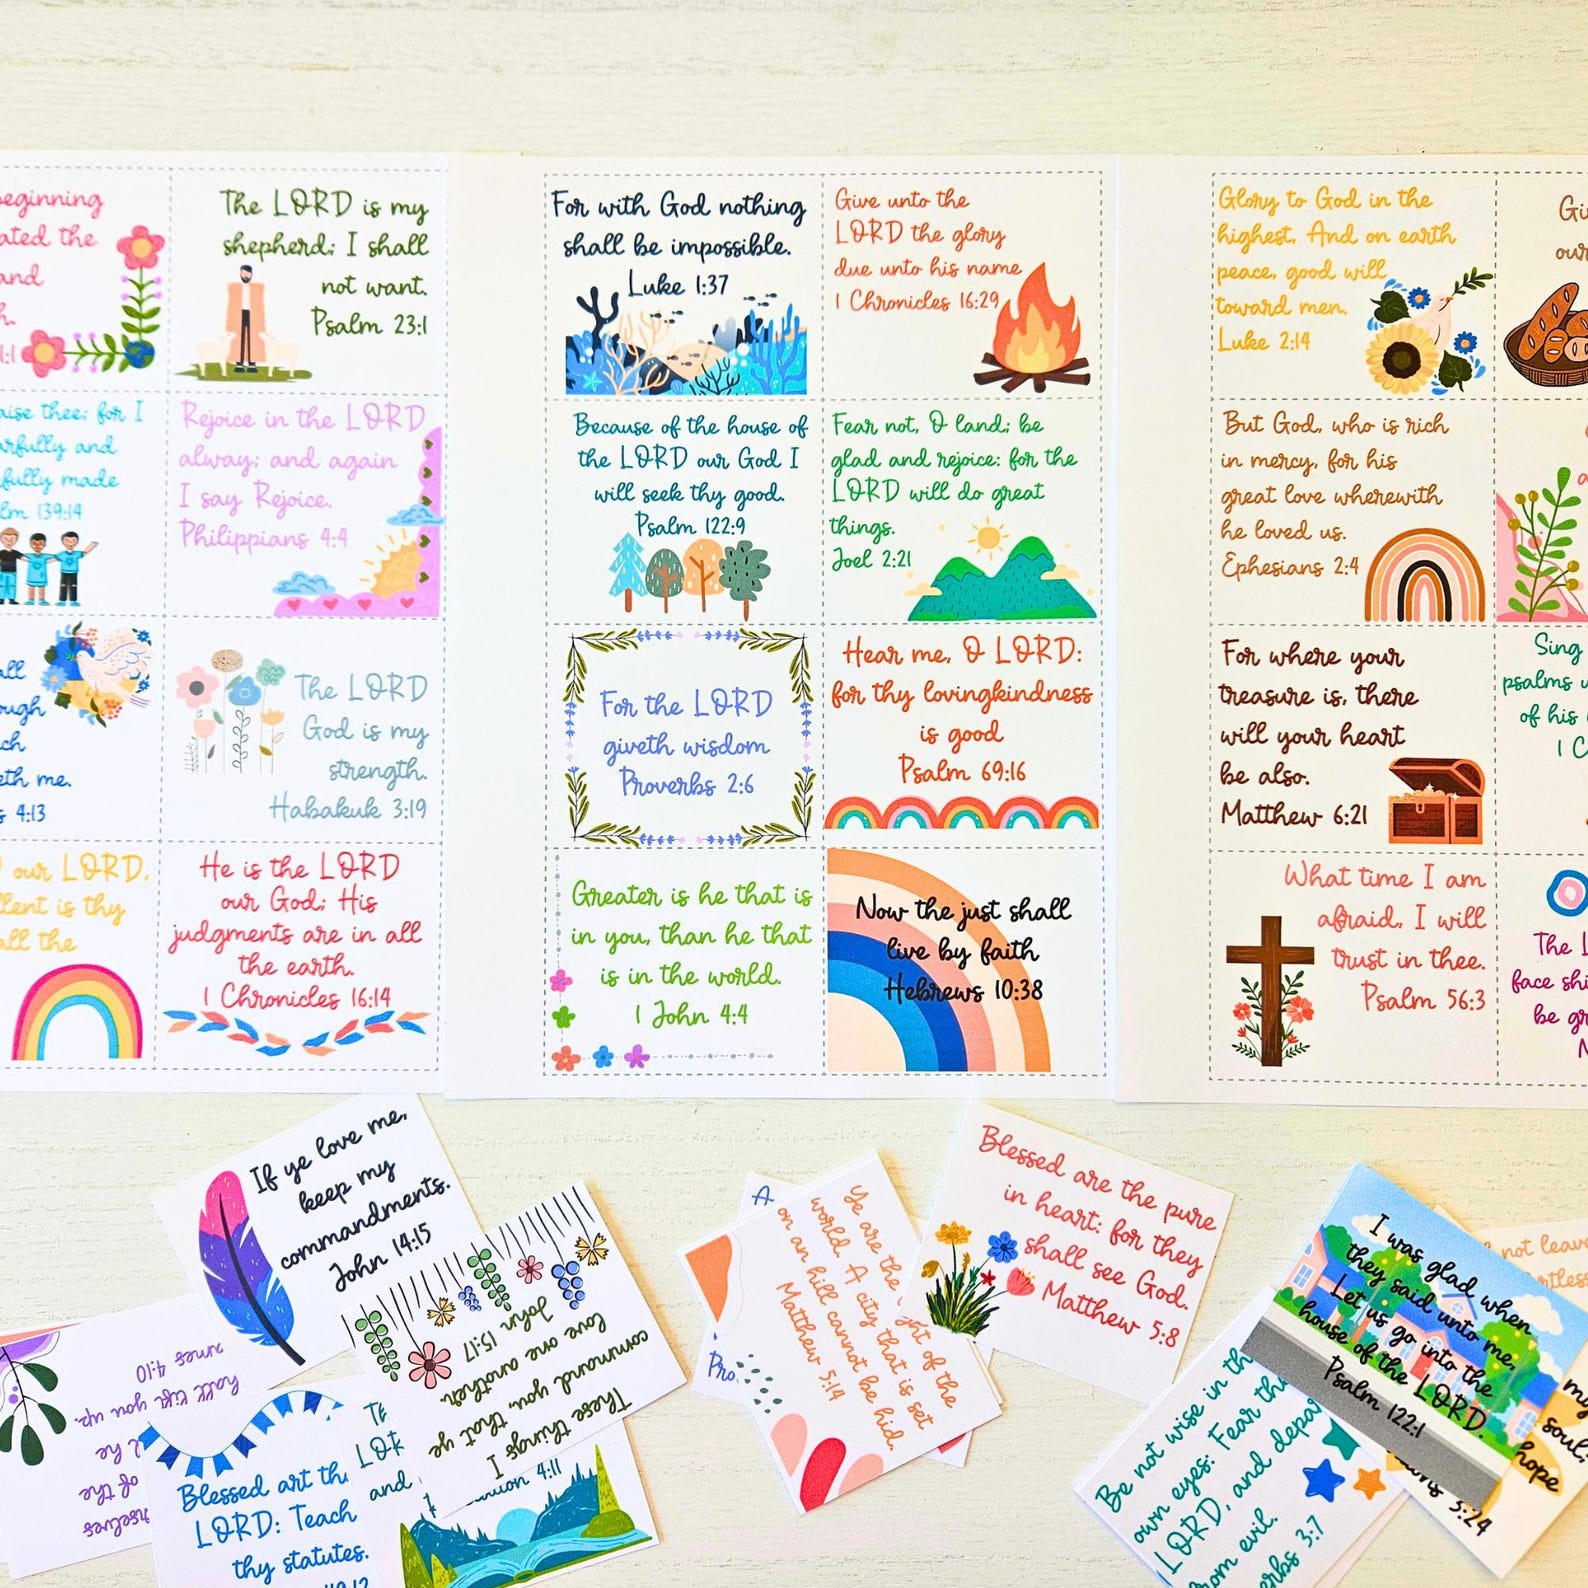 eginning
ated the
and
h.
1:1
The LORD is my
shepherd; I shall
not want.
Psalm 23:1
aise thee; for I
arfully and
fully made
lm 139:14
Rejoice in the LORD
alway; and again
I say Rejoice.
Philippians 4:4
all
ough
ch
eth me.
s 4:13
The LORD
God is my
strength.
Habakuk 3:19
our LORD,
llent is thy
all the
He is the LORD
our God; His
judgments are in all
the earth.
1 Chronicles 16:14
For with God nothing
shall be impossible.
Luke 1:37
Give unto the
LORD the glory
due unto his name
1 Chronicles 16:29
Because of the house of
the LORD our God I
will seek thy good.
Psalm 122:9
Fear not, O land; be
glad and rejoice: for the
LORD will do great
things.
Joel 2:21
For the LORD
giveth wisdom
Proverbs 2:6
Hear me, O LORD;
for thy lovingkindness
is good
Psalm 69:16
Greater is he that is
in you, than he that
is in the world.
1 John 4:4
Now the just shall
live by faith
Hebrews 10:38
Glory to God in the
highest, And on earth
peace, good will
toward men.
Luke 2:14
Gi
our
But God, who is rich
in mercy, for his
great love wherewith
he loved us.
Ephesians 2:4
a
For where your
treasure is, there
will your heart
be also.
Matthew 6:21
Sing
psalms
of his
1 C
What time I am
afraid, I will
trust in thee.
Psalm 56:3
The L
face shi
be gr
N
If ye love me,
keep my
commandments.
John 14:15
These things I
command you, that ye
love one another.
John 15:17
hall lift you up.
ames 4:10
Blessed art th
LORD: Teach
thy statutes.
Th
LOR
and
4:11
A
Pro
Ye are the light of the
world. A city that is set
on an hill cannot be hid.
Matthew 5:14
Blessed are the pure
in heart: for they
shall see God.
Matthew 5:8
I was glad when
they said unto me,
Let us go into the
house of the LORD.
Psalm 122:1
Be not wise in th
own eyes: Fear the
LORD, and depar
from evil.
erbs 3:7
not leave
my
soul;
hope
5:24